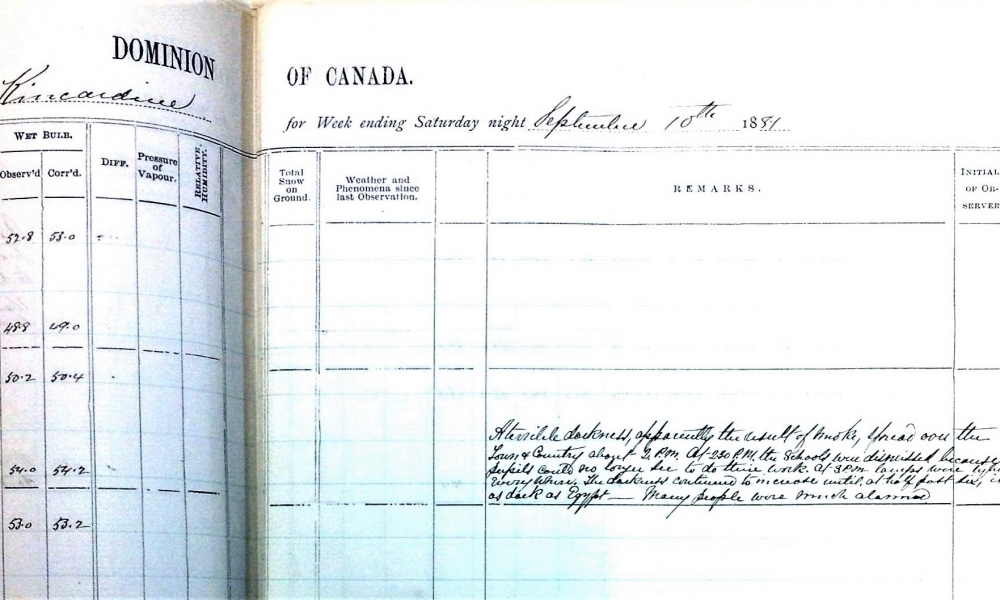 DOMINION OF CANADA.
Kincardine
for Week ending Saturday night September 10th 1881
WET BULB.
Observ'd Corr'd. DIFF. Pressure of Vapour. RELATIVE HUMIDITY.
Total Snow on Ground.
Weather and Phenomena since last Observation.
REMARKS.
INITIAL OF OB- SERVER
52.8 53.0
48.8 49.0
50.2 50.4
54.0 54.2
53.0 53.2
A terrible darkness, apparently the result of smoke, spread over the
Town & Country about 2 P.M. At 2.30 P.M. the Schools were dismissed because
pupils could no longer see to do their work. At 3 P.M. lamps were
everywhere. The darkness continued to increase until, at half past six,
as dark as Egypt — Many people were much alarmed